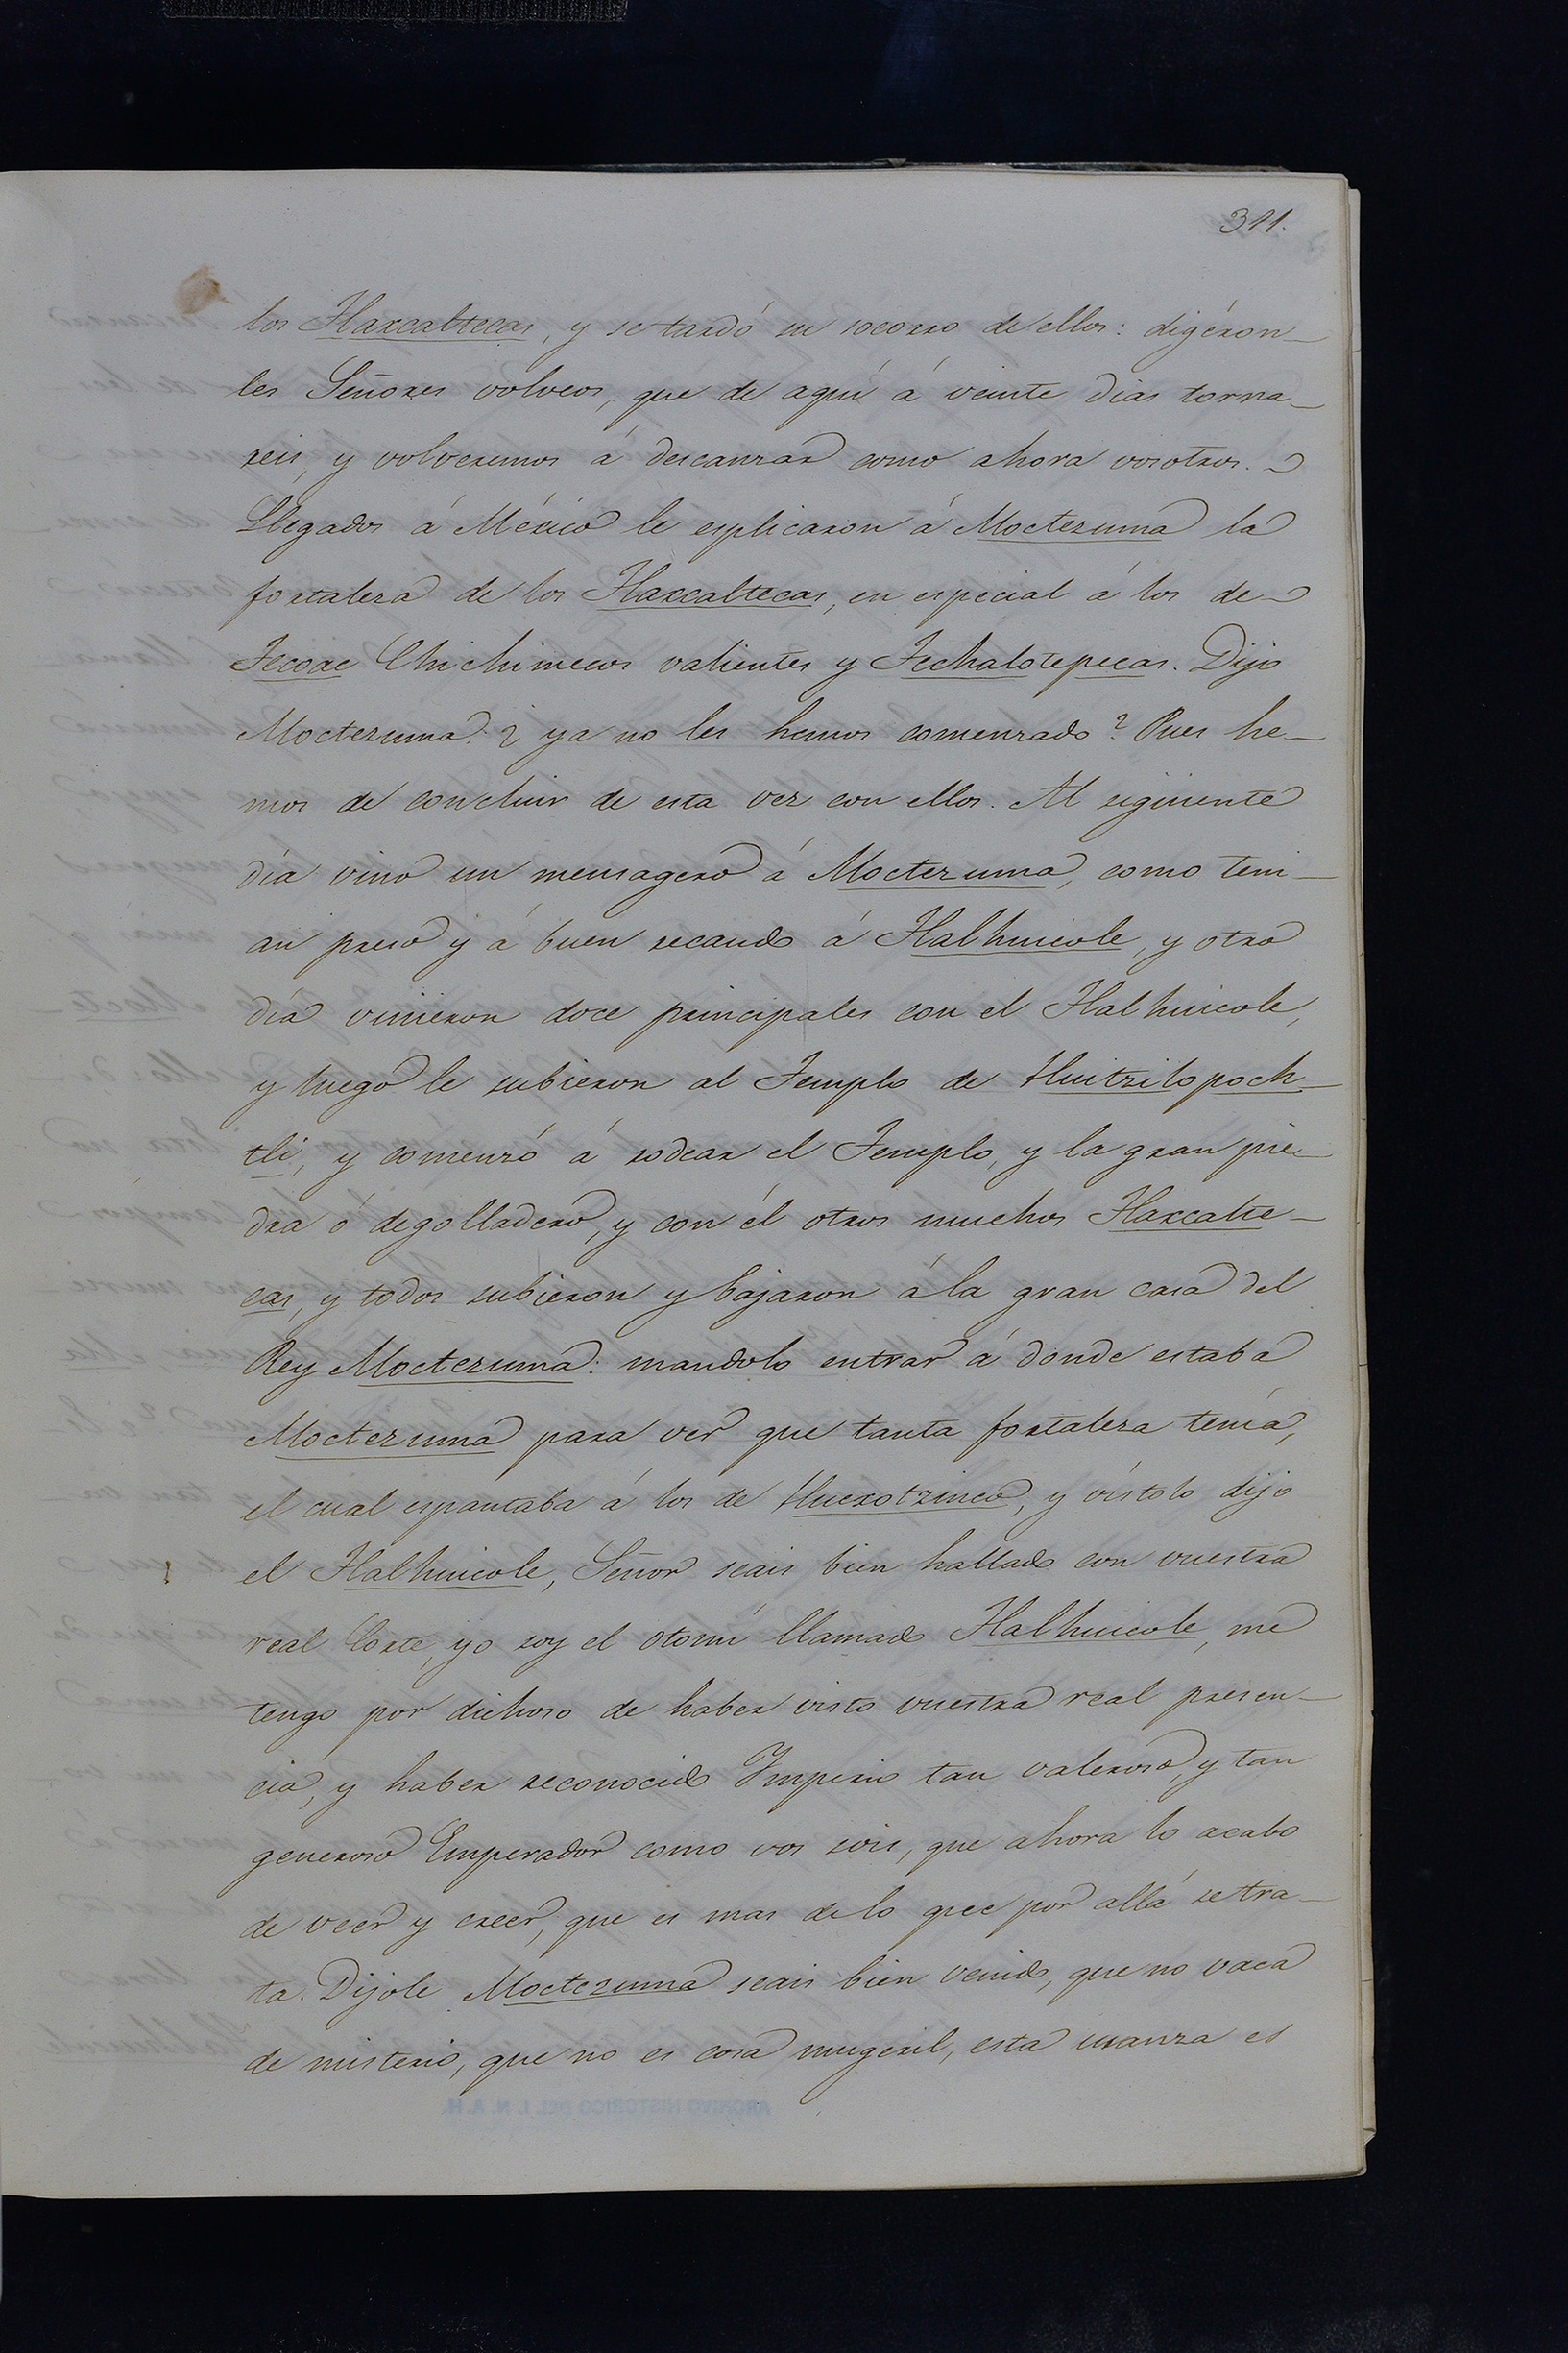 311.
los Tlaxcaltecas, y se tardó su socorro de ellos: digéron-
les Señores volveos, que de aquí á veinte dias torna-
reis, y volveremos á descanzar como ahora vosotros.
Llegados á México le esplicaron á Moctezuma la
fortaleza de los Tlaxcaltecas, en especial á los de
Tecoac Chichimecos valientes y Techalotepecas. Dijo
Moctezuma: ¿ ya no les hemos comenzado? Pues he-
mos de concluir de esta vez con ellos. Al siguiente
día vino un mensagero á Moctezuma, como tení-
an preso y á buen recaudo á Tlalhuicole, y otro
día vinieron doce principales con el Tlalhuicole,
y luego le subieron al Templo de Huitzilopoch-
tli, y comenzó á rodear el Templo, y la gran pie-
dra ó degolladero, y con él otros muchos Tlaxcalte-
cas, y todos subieron y bajaron á la gran casa del
Rey Moctezuma: mandolo entrar á donde estaba
Moctezuma para ver que tanta fortaleza tenía,
el cual espantaba á los de Huexotzinco, y vístolo dijo
el Tlalhuicole, Señor seais bien hallado con vuestra
real Corte, yo soy el otomí llamado Tlalhuicole, me
tengo por dichoso de haber visto vuestra real presen-
cia, y haber reconocido Imperio tan valeroso, y tan
generoso Emperador como vos sois, que ahora lo acabo
de veer y creer, que es mas de lo que por allá se tra-
ta. Dijole Moctezuma seais bien venido, que no vaca
de misterio, que no es cosa mugeril, esta usanza es
ARCHIVO HISTORICO DEL I. N. A. H.